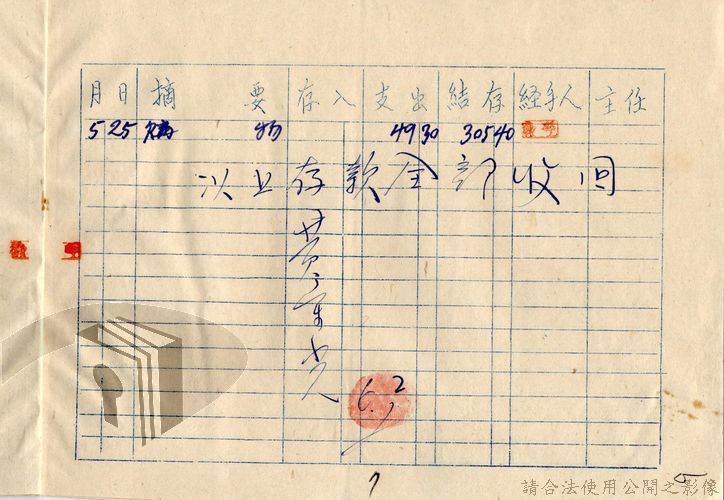 月日 摘要 存入 支出 結存 経手人 主任
5 25 購物 4930 30540
以上存款全部收回
黃
6.2
7
5
請合法使用公開之影像